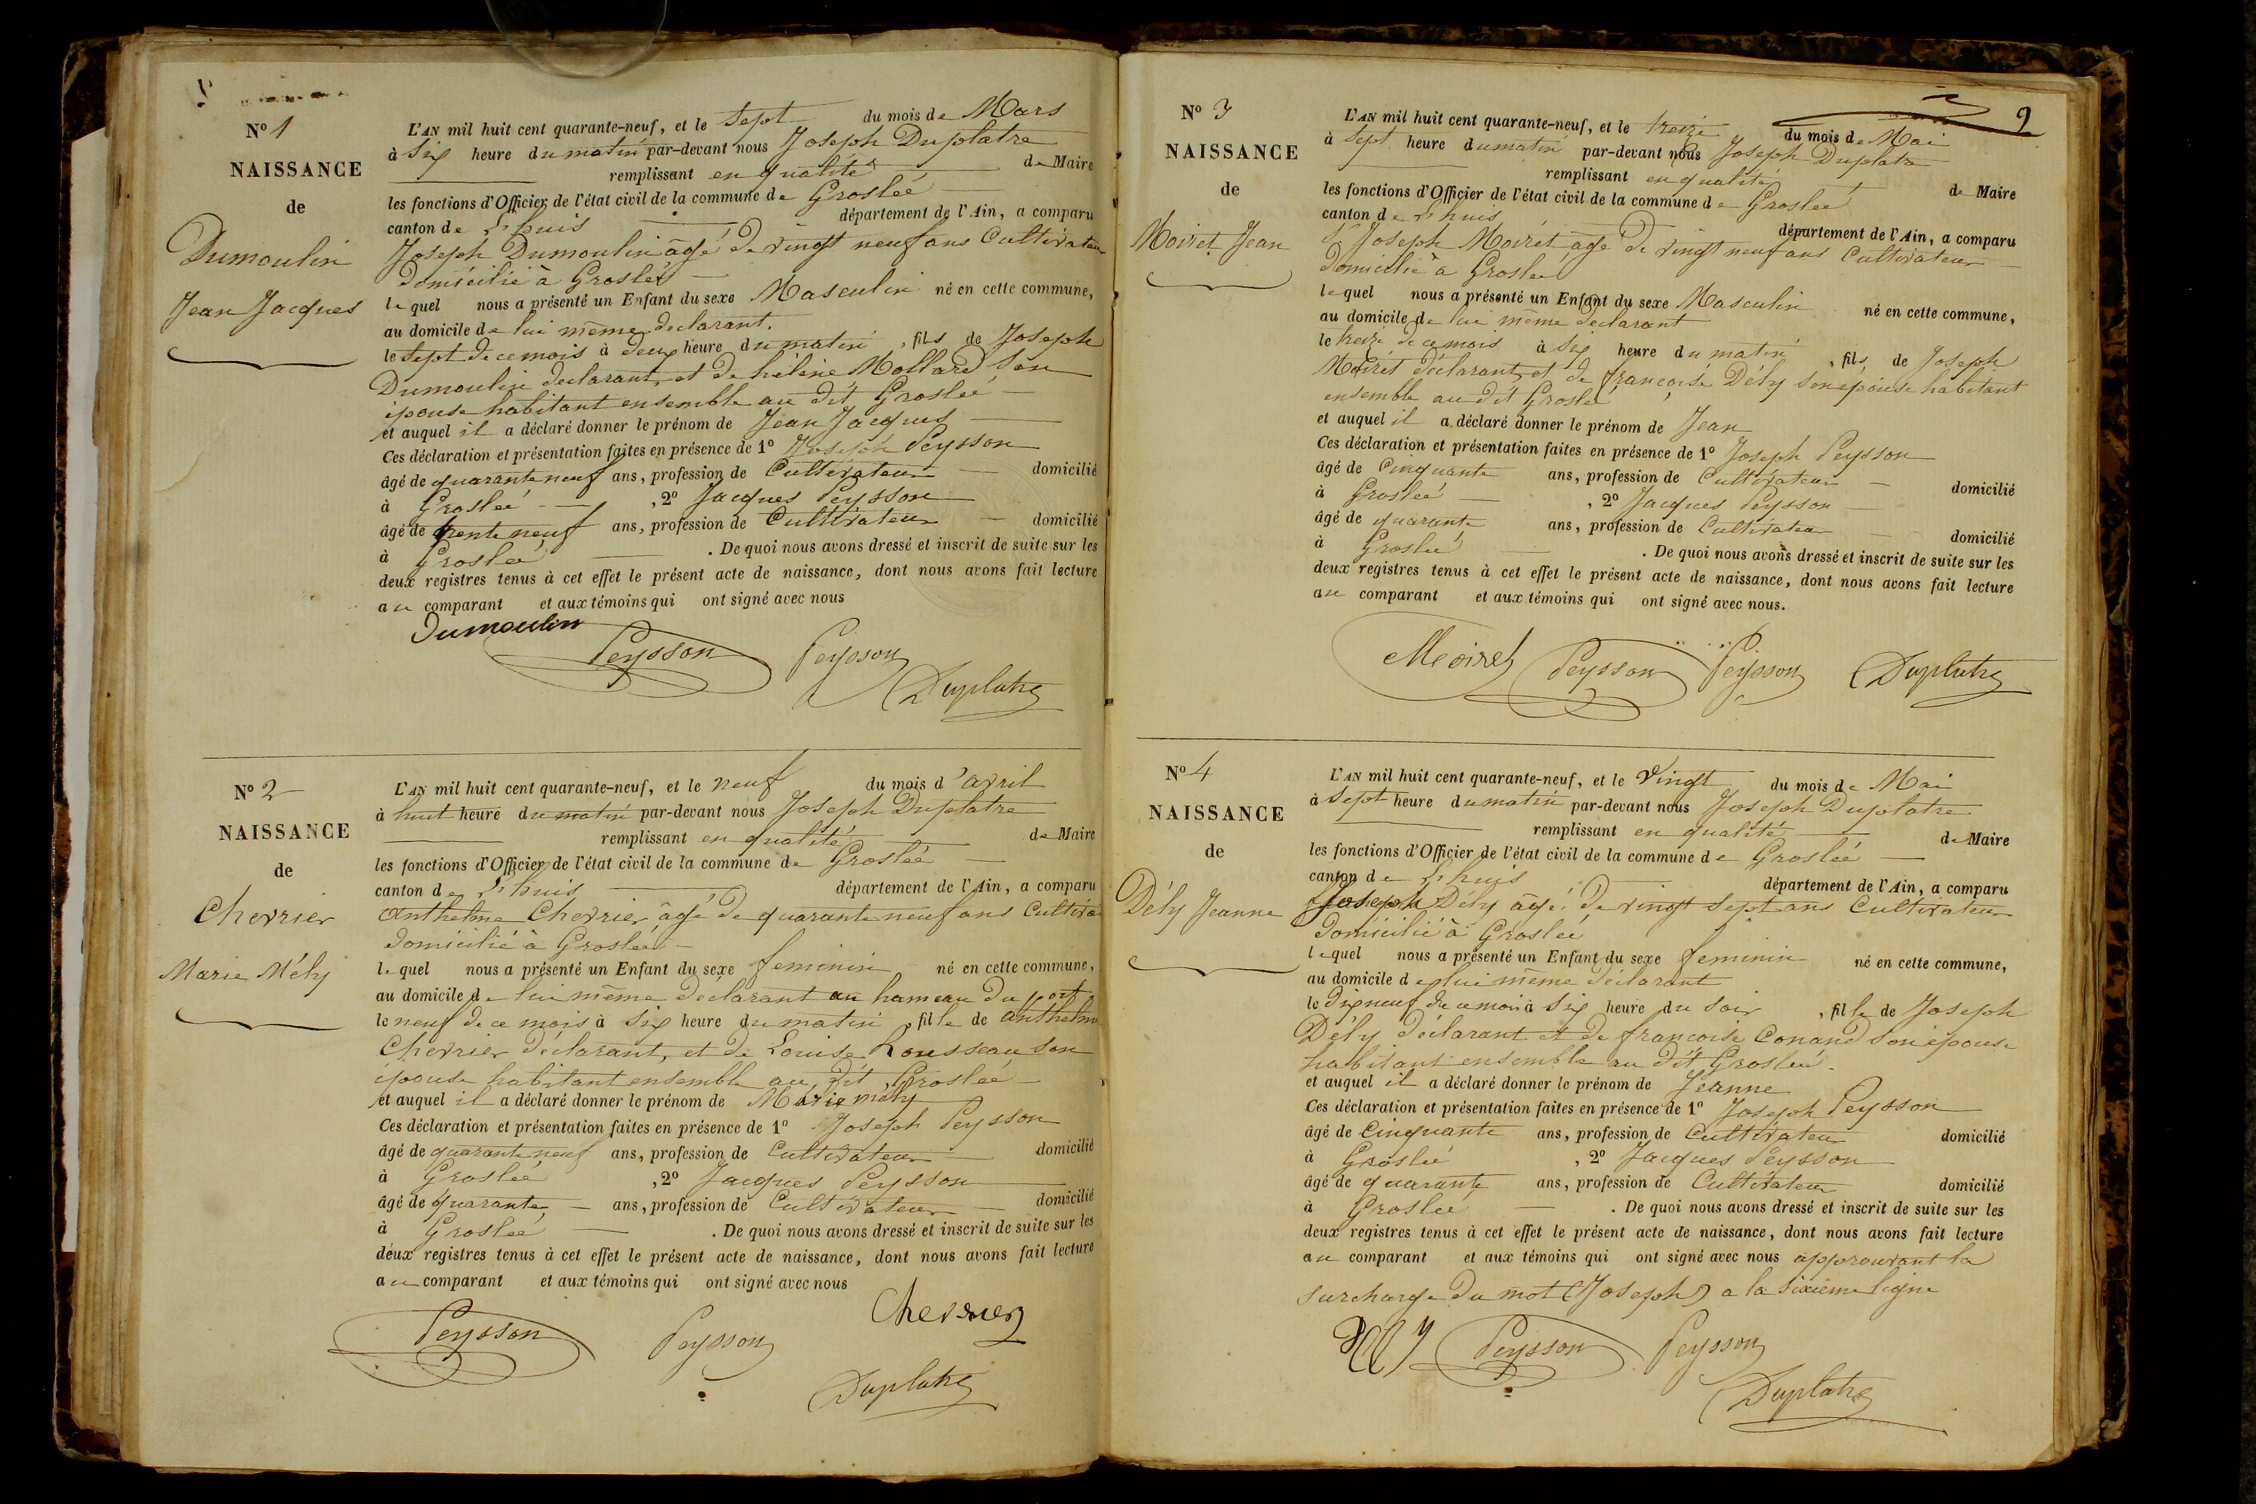 N° 1
NAISSANCE
de
Dumoulin
Jean Jacques
L'AN mil huit cent quarante-neuf, et le sept du mois de Mars
à six heure du matin par-devant nous Joseph Duplatre
remplissant en qualité de Maire
les fonctions d'Officier de l'état civil de la commune de Groslée
canton de l'huis département de l'Ain, a comparu
Joseph Dumoulin âgé de vingt neuf ans Cultivateur
domicilié à Groslée
lequel nous a présenté un Enfant du sexe Masculin né en cette commune,
au domicile de lui même déclarant.
le sept de ce mois à deux heure du matin, fils de Joseph
Dumoulin déclarant, et de hélène Mollard son
épouse habitant ensemble au dit Groslée
et auquel il a déclaré donner le prénom de Jean Jacques
Ces déclaration et présentation faites en présence de 1° Joseph Peysson
âgé de quarante neuf ans, profession de Cultivateur domicilié
à Groslée, 2° Jacques Peysson
âgé de trente neuf ans, profession de Cultivateur domicilié
à Groslée. De quoi nous avons dressé et inscrit de suite sur les
deux registres tenus à cet effet le présent acte de naissance, dont nous avons fait lecture
au comparant et aux témoins qui ont signé avec nous
Dumoulin
Peysson Peysson
Duplatre
N° 2
NAISSANCE
de
Chevrier
Marie Mély
L'AN mil huit cent quarante-neuf, et le neuf du mois d'avril
à huit heure du matin par-devant nous Joseph Duplatre
remplissant en qualité de Maire
les fonctions d'Officier de l'état civil de la commune de Groslée
canton de l'huis département de l'Ain, a comparu
Anthelme Chevrier âgé de quarante neuf ans Cultiva
domicilié à Groslée
lequel nous a présenté un Enfant du sexe feminin né en cette commune,
au domicile de lui même déclarant au hameau du port
le neuf de ce mois à six heure du matin, fille de anthelme
Chevrier déclarant, et de Louise Rousseau son
épouse habitant ensemble au dit Groslée
et auquel il a déclaré donner le prénom de Marie mély
Ces déclaration et présentation faites en présence de 1° Joseph Peysson
âgé de quarante neuf ans, profession de Cultivateur domicilié
à Groslée, 2° Jacques Peysson
âgé de quarante ans, profession de Cultivateur domicilié
à Groslée. De quoi nous avons dressé et inscrit de suite sur les
deux registres tenus à cet effet le présent acte de naissance, dont nous avons fait lecture
au comparant et aux témoins qui ont signé avec nous
Chevrier
Peysson Peysson
Duplatre
9
N° 3
NAISSANCE
de
Moiret Jean
L'AN mil huit cent quarante-neuf, et le treize du mois de Mai
à sept heure du matin par-devant nous Joseph Duplatre
remplissant en qualité de Maire
les fonctions d'Officier de l'état civil de la commune de Groslée
canton de l'huis département de l'Ain, a comparu
Joseph Moiret, âgé de vingt neuf ans Cultivateur
domicilié à Groslée
lequel nous a présenté un Enfant du sexe Masculin né en cette commune,
au domicile de lui même déclarant
le treize de ce mois à six heure du matin, fils de Joseph
Moiret déclarant, et de françoise Dély son épouse habitant
ensemble au dit Groslée
et auquel il a déclaré donner le prénom de Jean
Ces déclaration et présentation faites en présence de 1° Joseph Peysson
âgé de Cinquante ans, profession de Cultivateur domicilié
à Groslée, 2° Jacques Peysson
âgé de quarante ans, profession de Cultivateur domicilié
à Groslée. De quoi nous avons dressé et inscrit de suite sur les
deux registres tenus à cet effet le présent acte de naissance, dont nous avons fait lecture
au comparant et aux témoins qui ont signé avec nous.
Moiret Peysson Peysson Duplatre
N° 4
NAISSANCE
de
Dély Jeanne
L'AN mil huit cent quarante-neuf, et le vingt du mois de Mai
à sept heure du matin par-devant nous Joseph Duplatre
remplissant en qualité de Maire
les fonctions d'Officier de l'état civil de la commune de Groslée
canton de l'huis département de l'Ain, a comparu
Joseph Dély âgé de vingt sept ans Cultivateur
domicilié à Groslée
lequel nous a présenté un Enfant du sexe feminin né en cette commune,
au domicile de lui même déclarant
le dix neuf de ce mois à six heure du soir, fille de Joseph
Dély déclarant et de françoise Conand son épouse
habitant ensemble au dit Groslée.
et auquel il a déclaré donner le prénom de Jeanne
Ces déclaration et présentation faites en présence de 1° Joseph Peysson
âgé de Cinquante ans, profession de Cultivateur domicilié
à Groslée, 2° Jacques Peysson
âgé de quarante ans, profession de Cultivateur domicilié
à Groslée. De quoi nous avons dressé et inscrit de suite sur les
deux registres tenus à cet effet le présent acte de naissance, dont nous avons fait lecture
au comparant et aux témoins qui ont signé avec nous approuvant la
surcharge du mot (Joseph) a la sixième ligne
Peysson Peysson
Duplatre